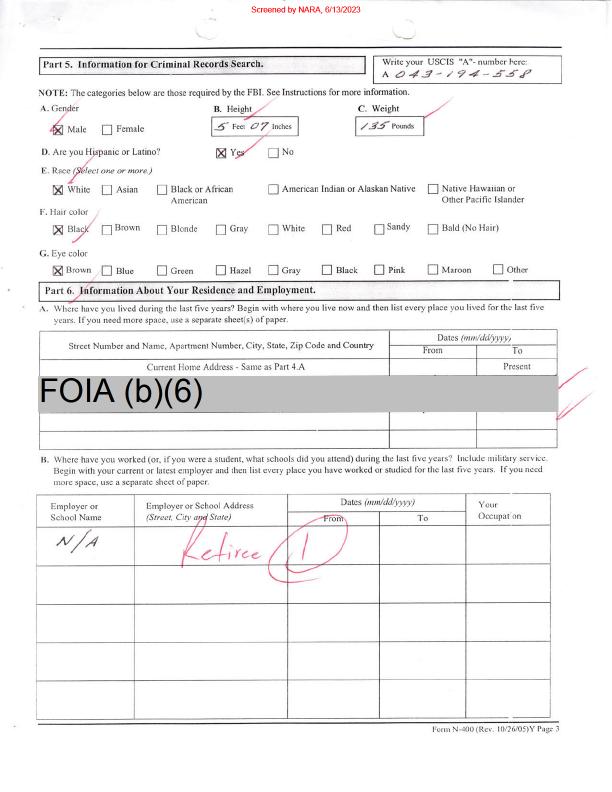 Screened by NARA, 6/13/2023
Part 5. Information for Criminal Records Search.
Write your USCIS "A"- number here:
A 043-194-558
NOTE: The categories below are those required by the FBI. See Instructions for more information.
A. Gender B. Height C. Weight
Male Female 5 Feet 07 Inches 135 Pounds
D. Are you Hispanic or Latino? Yes No
E. Race (Select one or more.)
White Asian Black or African American American Indian or Alaskan Native Native Hawaiian or Other Pacific Islander
F. Hair color
Black Brown Blonde Gray White Red Sandy Bald (No Hair)
G. Eye color
Brown Blue Green Hazel Gray Black Pink Maroon Other
Part 6. Information About Your Residence and Employment.
A. Where have you lived during the last five years? Begin with where you live now and then list every place you lived for the last five
years. If you need more space, use a separate sheet(s) of paper.
Street Number and Name, Apartment Number, City, State, Zip Code and Country
Dates (mm/dd/yyyy)
From To
Current Home Address - Same as Part 4.A Present
FOIA (b)(6)
B. Where have you worked (or, if you were a student, what schools did you attend) during the last five years? Include military service.
Begin with your current or latest employer and then list every place you have worked or studied for the last five years. If you need
more space, use a separate sheet of paper.
Employer or School Name
Employer or School Address (Street, City and State)
Dates (mm/dd/yyyy)
From To
Your Occupation
N/A Retiree 1
Form N-400 (Rev. 10/26/05)Y Page 3